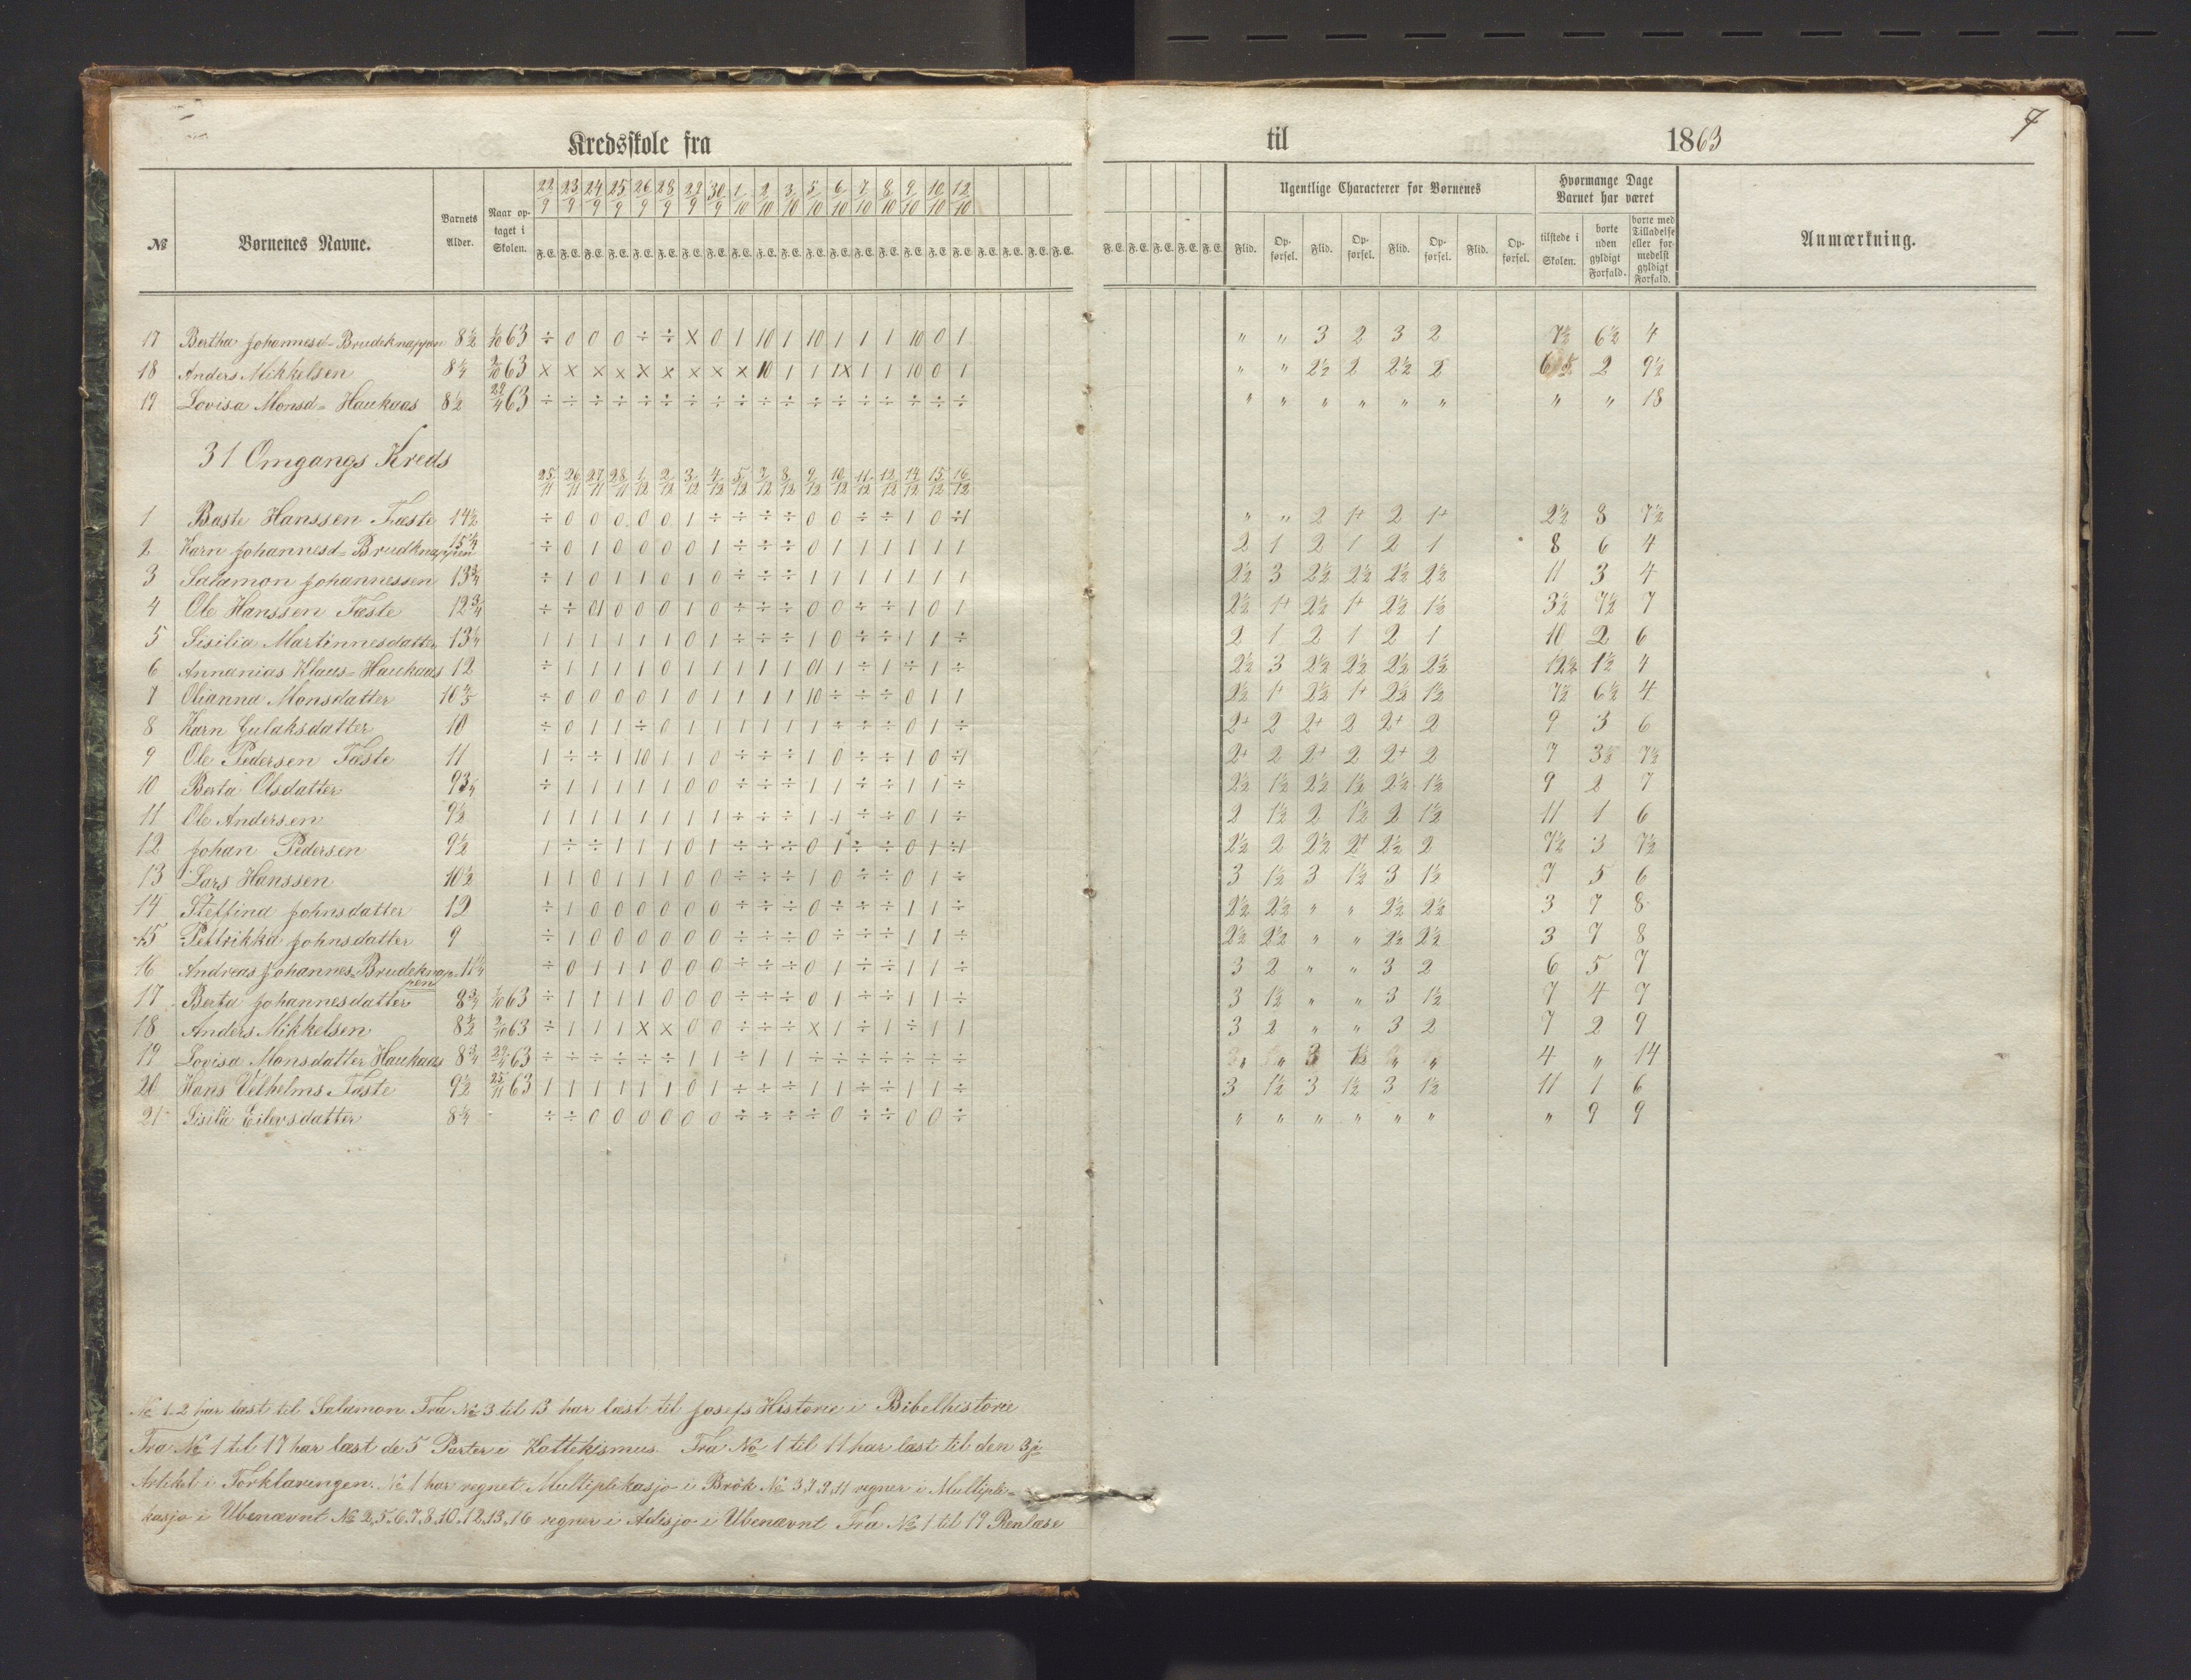 7
Kredsskole fra til 1863
№ Børnenes Navne. Barnets Alder. Naar optaget i Skolen. 22/9 23/9 24/9 25/9 26/9 28/9 29/9 30/9 1/10 2/10 3/10 5/10 6/10 7/10 8/10 9/10 10/10 12/10
F.E. F.E. F.E. F.E. F.E. F.E. F.E. F.E. F.E. F.E. F.E. F.E. F.E. F.E. F.E. F.E. F.E. F.E. F.E. F.E. F.E. F.E. F.E. F.E. F.E. F.E. F.E.
Ugentlige Characterer for Børnenes
Flid. Opførsel. Flid. Opførsel. Flid. Opførsel. Flid. Opførsel.
Hvormange Dage Barnet har været
tilstede i Skolen. borte uden gyldigt Forfald. borte med Tilladelse eller formedelst gyldigt Forfald.
Anmærkning.
17 Bertha Johannesd- Brudeknappen 8½ 1/10 63 ÷ 0 0 0 ÷ ÷ X 0 1 10 1 10 1 1 1 10 0 1 " " 3 2 3 2 7½ 6½ 4
18 Anders Mikkelsen 8¼ 2/10 63 X X X X X X X X X 10 1 1 1X 1 1 10 0 1 " " 2½ 2 2½ 2 2 9½
19 Lovisa Monsd= Haukaas 8½ 29/4 63 ÷ ÷ ÷ ÷ ÷ ÷ ÷ ÷ ÷ ÷ ÷ ÷ ÷ ÷ ÷ ÷ ÷ ÷ " " " " " " " " 18
31 Omgangs Kreds
25/11 26/11 27/11 28/11 1/12 2/12 3/12 4/12 5/12 7/12 8/12 9/12 10/12 11/12 12/12 14/12 15/12 16/12
1 Baste Hanssen Tæste 14½ ÷ 0 0 0 0 0 1 ÷ ÷ ÷ ÷ 0 0 ÷ ÷ 1 0 ÷1 " " 2 1+ 2 1+ 2½ 8 7½
2 Karn Johannesd= Brudknappen 15¼ ÷ 0 1 0 0 0 0 1 ÷ ÷ ÷ 0 1 1 1 1 1 1 2 1 2 1 2 1 8 6 4
3 Salamon Johannessen 13¾ ÷ 1 0 1 1 0 1 0 ÷ ÷ ÷ 1 1 1 1 1 1 1 2½ 3 2½ 2½ 2½ 2½ 11 3 4
4 Ole Hanssen Tæste 12¾ ÷ ÷ 01 0 0 0 1 0 ÷ ÷ ÷ 0 0 ÷ ÷ 1 0 1 2½ 1+ 2½ 1+ 2½ 1½ 3½ 7½ 7
5 Sisilia Martinnesdatter 13¼ 1 1 1 1 1 1 0 1 ÷ ÷ ÷ 1 0 ÷ ÷ 1 1 ÷ 2 1 2 1 2 1 10 2 6
6 Annanias Klaus= Haukaas 12 ÷ 1 1 1 0 1 1 1 1 1 1 01 1 ÷ 1 ÷ 1 ÷ 2½ 3 2½ 2½ 2½ 2½ 12½ 1½ 4
7 Olianna Monsdatter ÷ 0 0 0 0 1 0 1 1 1 1 10 ÷ ÷ ÷ 0 1 1 2½ 1+ 2½ 1+ 2½ 1½ 7½ 6½ 4
8 Karn Gulaksdatter 10 ÷ 0 1 1 ÷ 0 1 1 1 1 1 1 ÷ ÷ ÷ 0 1 ÷ 2+ 2 2+ 2 2+ 2 9 3 6
9 Ole Pedersen Tæste 11 1 ÷ ÷ 1 10 1 1 0 ÷ ÷ ÷ 1 0 ÷ ÷ 1 0 ÷1 2+ 2 2+ 2 2+ 2 7 3½ 7½
10 Berta Olsdatter 9¾ ÷ 1 1 1 1 1 0 0 ÷ ÷ ÷ 1 1 ÷ ÷ 1 1 ÷ 2½ 1½ 2½ 1½ 2½ 1½ 9 2 7
11 Ole Andersen 9½ 1 1 1 1 1 1 1 1 ÷ ÷ ÷ 1 1 ÷ ÷ 0 1 ÷ 2 1½ 2 1½ 2 1½ 11 1 6
12 Johan Pedersen 9½ 1 ÷ ÷ 1 1 1 0 1 ÷ ÷ ÷ 0 1 ÷ ÷ 0 1 ÷1 2½ 2 2½ 2+ 2½ 2 7½ 3 7½
13 Lars Hanssen 10½ 1 1 0 1 1 1 0 0 ÷ ÷ ÷ 1 0 ÷ ÷ 0 1 ÷ 3 1½ 3 1½ 3 1½ 7 5 6
14 Steffina Johnsdatter 12 ÷ 1 0 0 0 0 0 0 ÷ ÷ ÷ 0 ÷ ÷ ÷ 1 1 ÷ 2½ 2½ " " 2½ 2½ 3 7 8
15 Pettrikka Johnsdatter 9 ÷ 1 0 0 0 0 0 0 ÷ ÷ ÷ 0 ÷ ÷ ÷ 1 1 ÷ 2½ 2½ " " 2½ 2½ 3 7 8
16 Andreas Johannes= Brudeknappen 11¼ ÷ 0 1 1 1 0 0 0 ÷ ÷ ÷ 0 1 ÷ ÷ 1 1 ÷ 3 2 " " 3 2 6 5 7
17 Berta Johannesdatter 8¾ 1/10 63 ÷ 1 1 1 1 0 0 0 ÷ ÷ ÷ 0 1 ÷ ÷ 1 1 ÷ 3 1½ " " 3 1½ 7 4 7
18 Anders Mikkelsen 8½ 2/10 63 ÷ 1 1 1 X X 0 0 ÷ ÷ ÷ X 1 ÷ 1 ÷ 1 1 3 2 " " 3 2 7 2 9
19 Lovisa Monsdatter Haukaas 8¾ 29/4 63 ÷ ÷ ÷ ÷ ÷ ÷ 1 1 ÷ 1 1 ÷ ÷ ÷ ÷ ÷ ÷ ÷ " " 3 1½ " " 4 " 14
20 Hans Velhelms Tæste 9½ 25/11 63 1 1 1 1 1 1 0 1 ÷ ÷ ÷ 1 1 ÷ ÷ 1 1 ÷ 3 1½ 3 1½ 3 1½ 11 1 6
21 Sisila Eilevsdatter 8¼ ÷ ÷ 0 0 0 0 0 0 ÷ ÷ ÷ ÷ 0 ÷ ÷ 0 0 ÷ " " " " " " " 9 9
№ 1-2 har læst til Salamon Fra № 3 til 13 har læst til Josefs Historie i Bibelhistorie
Fra № 1 til 17 har læst de 5 Parter i Kattekismus. Fra № 1 til 11 har læst til den 3je
Artikel i Forklaringen. № 1 har regnet Multiplikasjo i Brök № 3,4,9,11 regner i Multipli=
kasjo i Ubenævnt № 2,5,6,7,8,10,12,13,16 regner i Adisjo i Ubenævnt Fra № 1 til 19 Renlæse